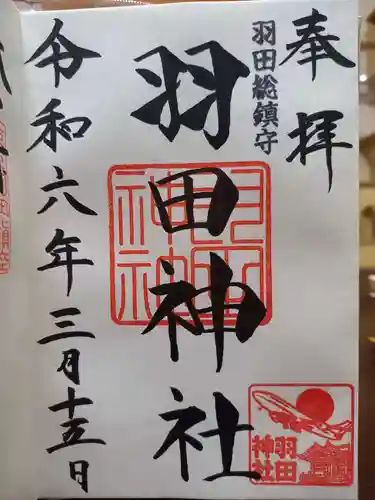 奉拝
羽田総鎮守
羽田神社
令和六年三月十五日
羽田神社
羽田
神社